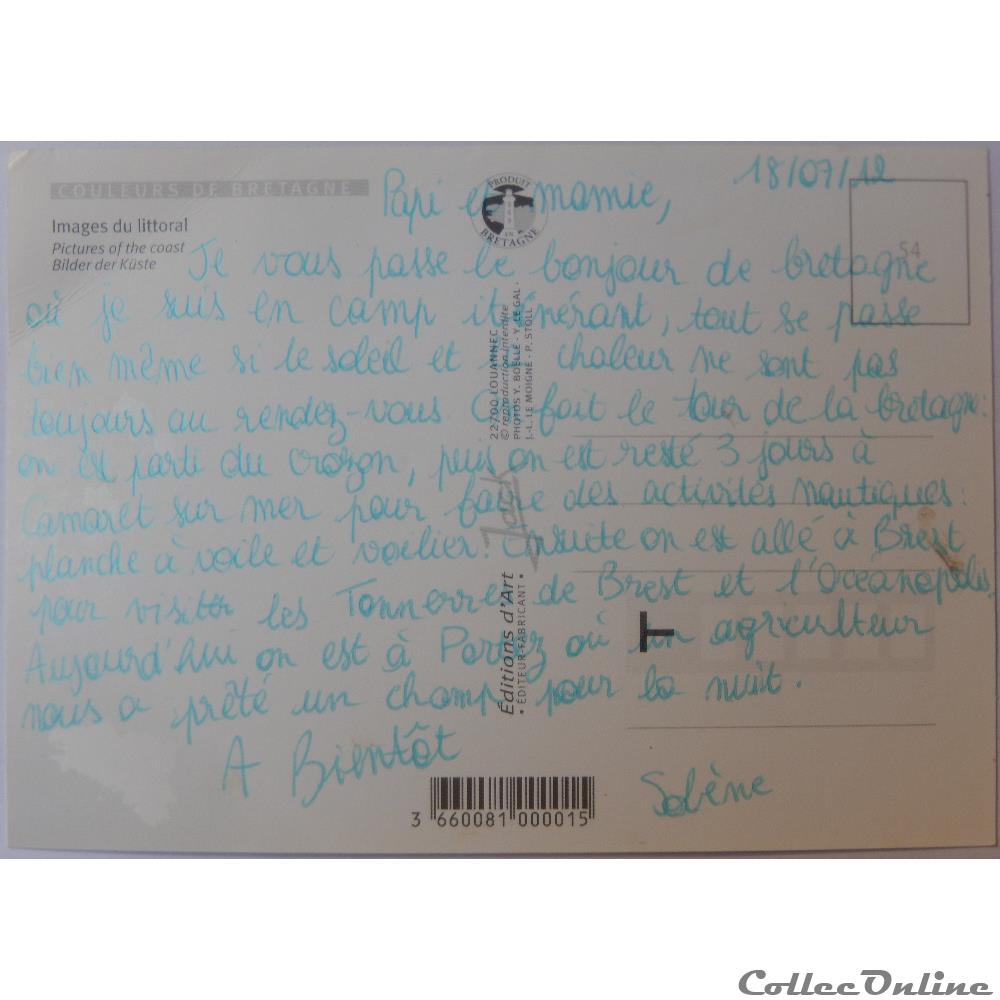 18/07/12
COULEURS DE BRETAGNE
Papi et mamie,
Images du littoral
Pictures of the coast
Bilder der Küste
PRODUIT EN BRETAGNE
54
Je vous passe le bonjour de bretagne
où je suis en camp itinérant, tout se passe
bien même si le soleil et sa chaleur ne sont pas
toujours au rendez-vous. On fait le tour de la bretagne:
on est parti du crozon, puis on est resté 3 jours à
Camaret sur mer pour faire des activités nautiques:
planche à voile et voilier. Ensuite on est allé à Brest
pour visiter les Tonnerres de Brest et l'Océanopolis.
Aujourd'hui on est à Portez où un agriculteur
nous a prêté un champ pour la nuit.
A Bientôt
Solène
22700 LOUANNEC
© reproduction interdite
PHOTOS Y. BOËLLE - Y. LE GAL -
J.-L. LE MOIGNE - P. STOLL
Jack
Éditions d'Art
• ÉDITEUR-FABRICANT •
T
3 660081 000015
CollecOnline